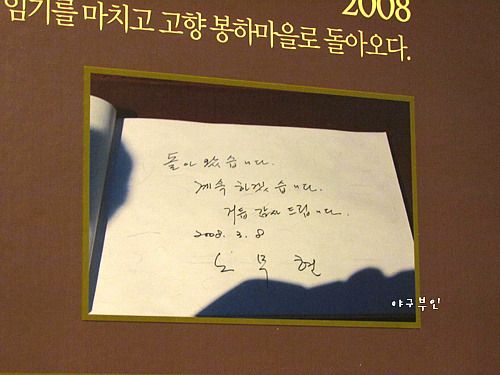 2008
임기를 마치고 고향 봉하마을로 돌아오다.
돌아 왔습니다.
계속 하겠습니다.
거듭 감사 드립니다.
2008. 3. 8
노 무 현
야구부인